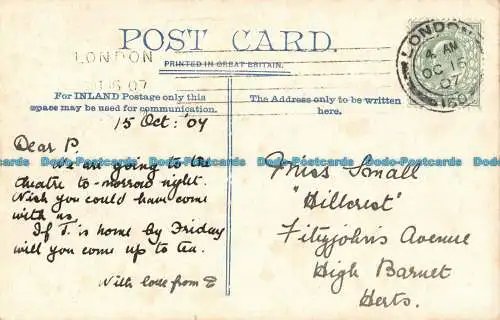 POST CARD.
PRINTED IN GREAT BRITAIN.
LONDON
OC 15 07
LONDON
4. AM
OC 15
07
For INLAND Postage only this
space may be used for communication.
The Address only to be written
here.
15 Oct: '07
Dear P.
We are going to the
theatre to-morrow night.
Wish you could have come
with us.
If T. is home by Friday
will you come up to tea.
With love from E
Miss Small
"Hillcrest"
Fitzjohn's Avenue
High Barnet
Herts.
Dodo-Postcards Dodo-Postcards Dodo-Postcards Dodo-Postcards Dodo-Postcards